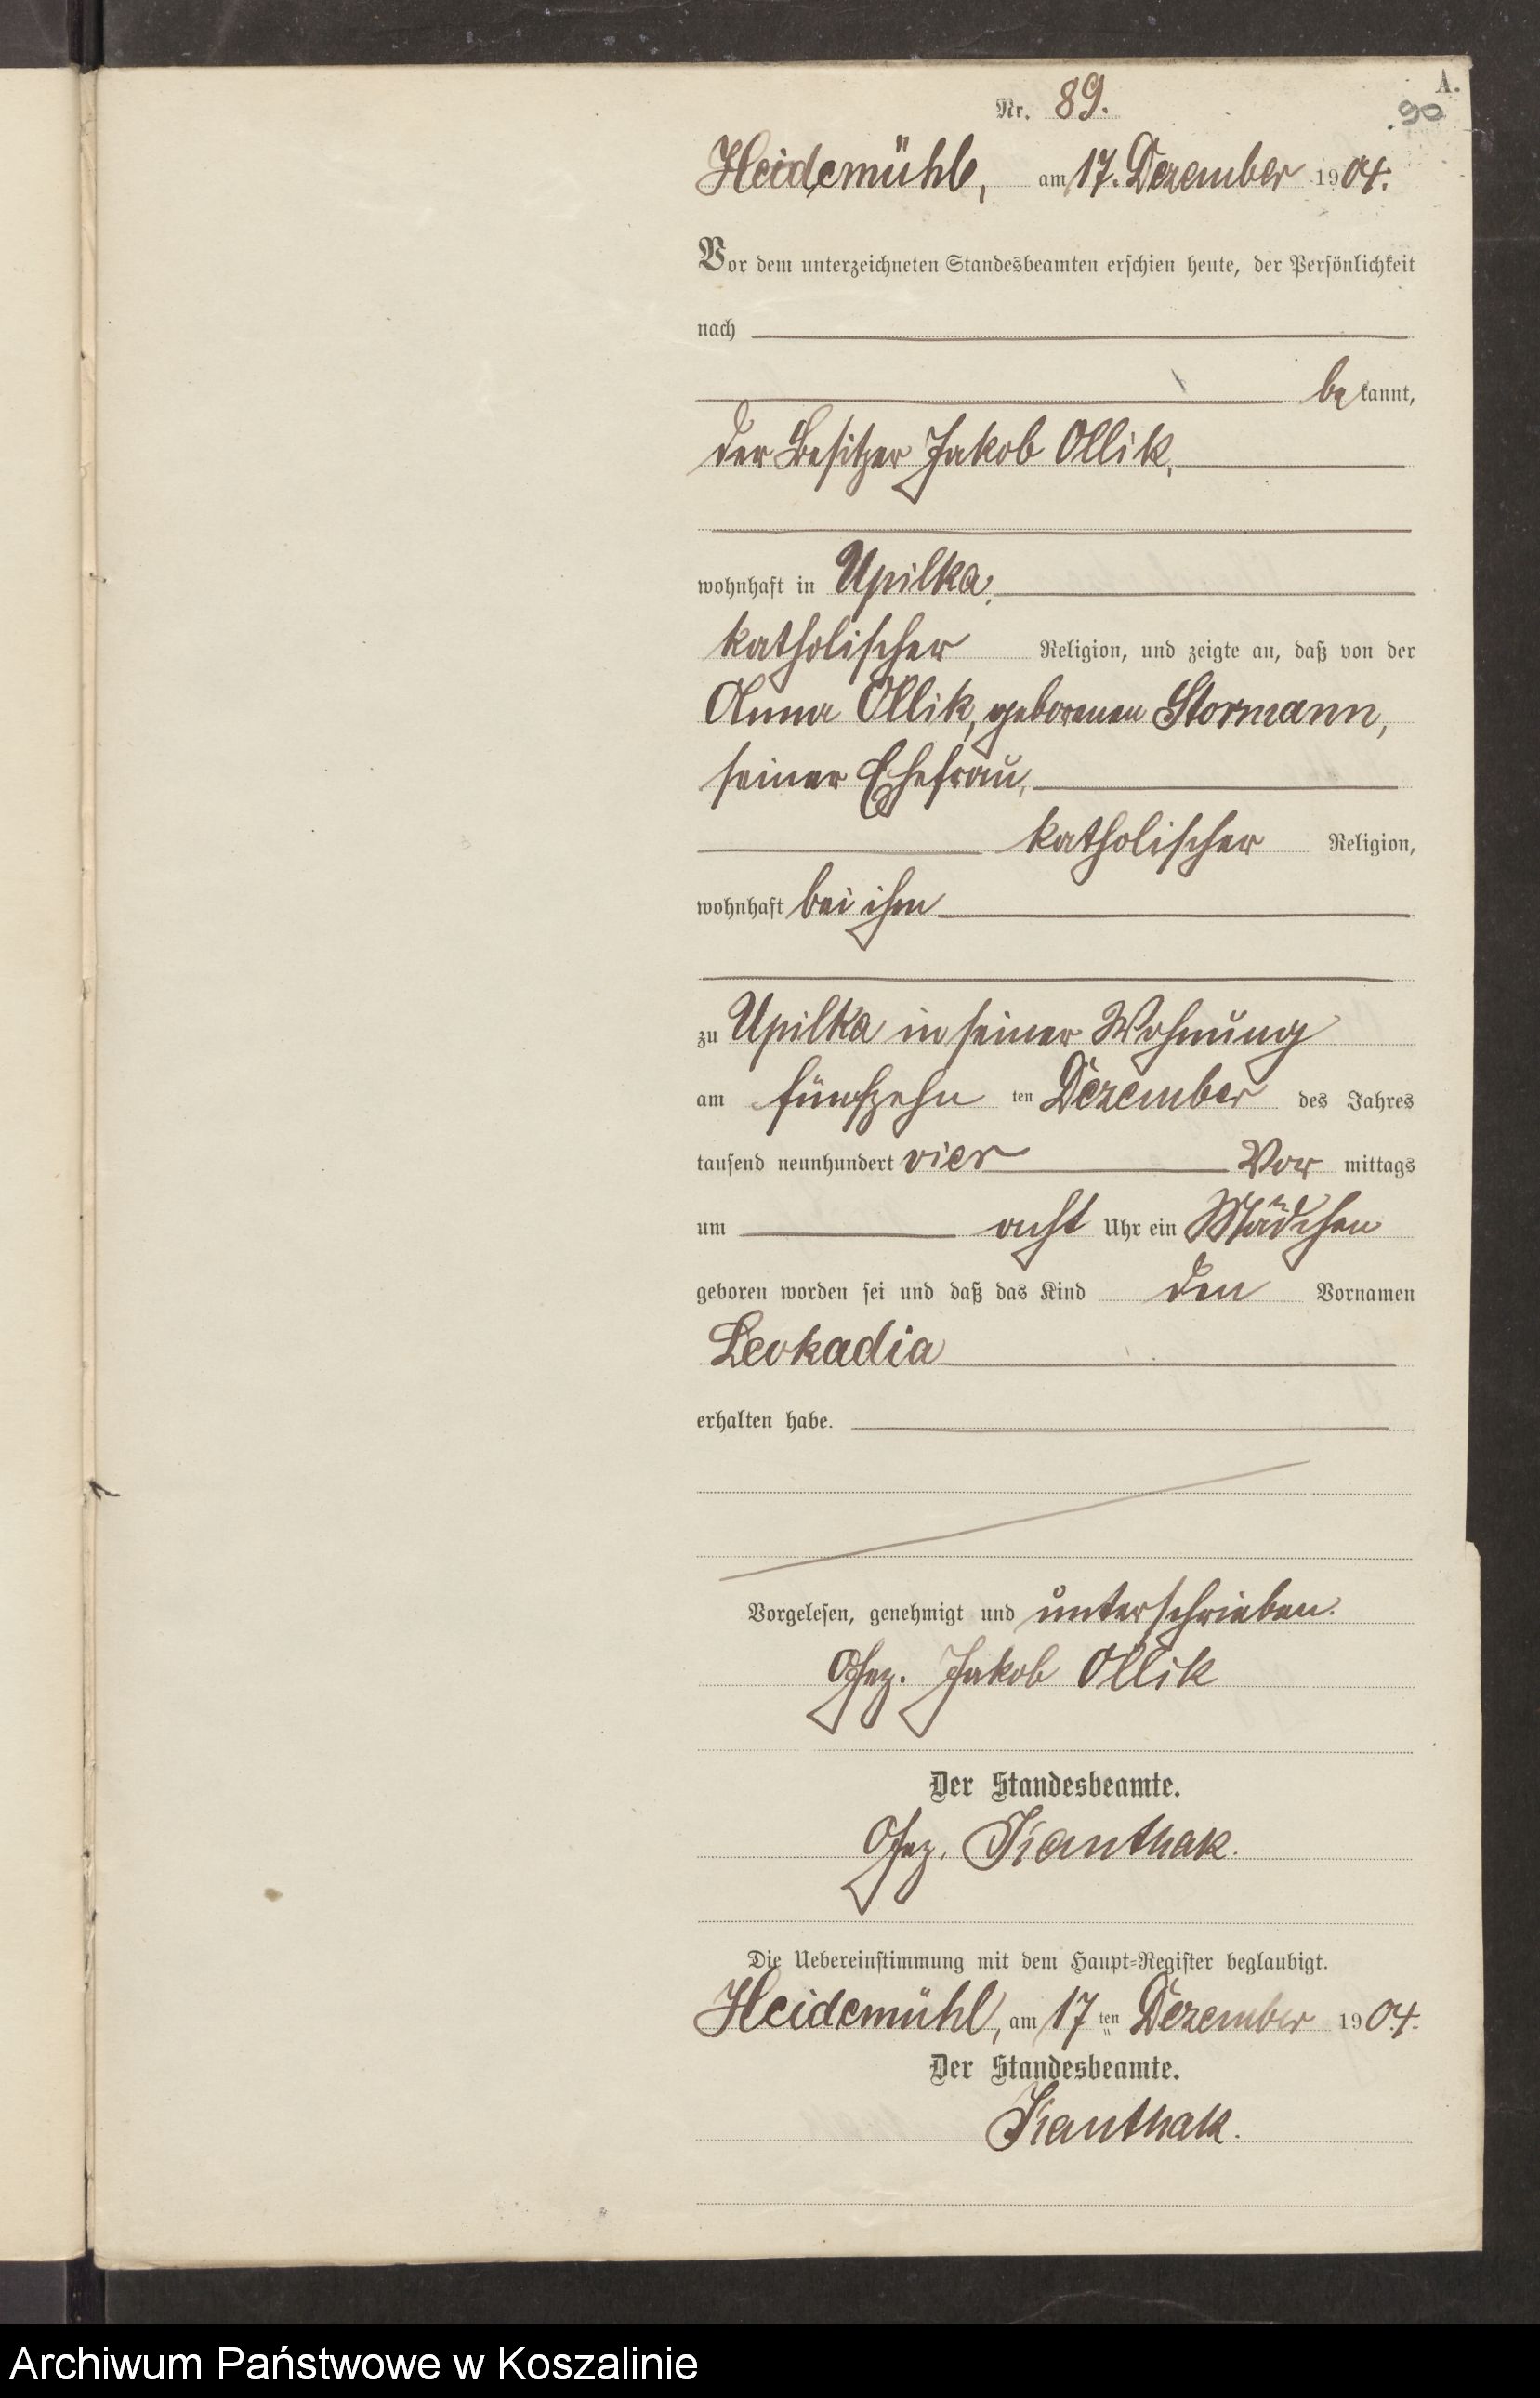 A.
90
Nr. 89.
Heidemühl, am 17. Dezember 1904.
Vor dem unterzeichneten Standesbeamten erschien heute, der Persönlichkeit
nach
bekannt,
der Besitzer Jakob Ollik,
wohnhaft in Upilka,
katholischer Religion, und zeigte an, daß von der
Anna Ollik, geborenen Stormann,
seiner Ehefrau,
katholischer Religion,
wohnhaft bei ihm
zu Upilka in seiner Wohnung
am fünfzehn ten Dezember des Jahres
tausend neunhundert vier Vor mittags
um acht Uhr ein Mädchen
geboren worden sei und daß das Kind den Vornamen
Leokadia
erhalten habe.
Vorgelesen, genehmigt und unterschrieben.
Gez. Jakob Ollik
Der Standesbeamte.
Gez. Kanthak.
Die Uebereinstimmung mit dem Haupt-Register beglaubigt.
Heidemühl, am 17 ten Dezember 1904.
Der Standesbeamte.
Kanthak.
Archiwum Państwowe w Koszalinie